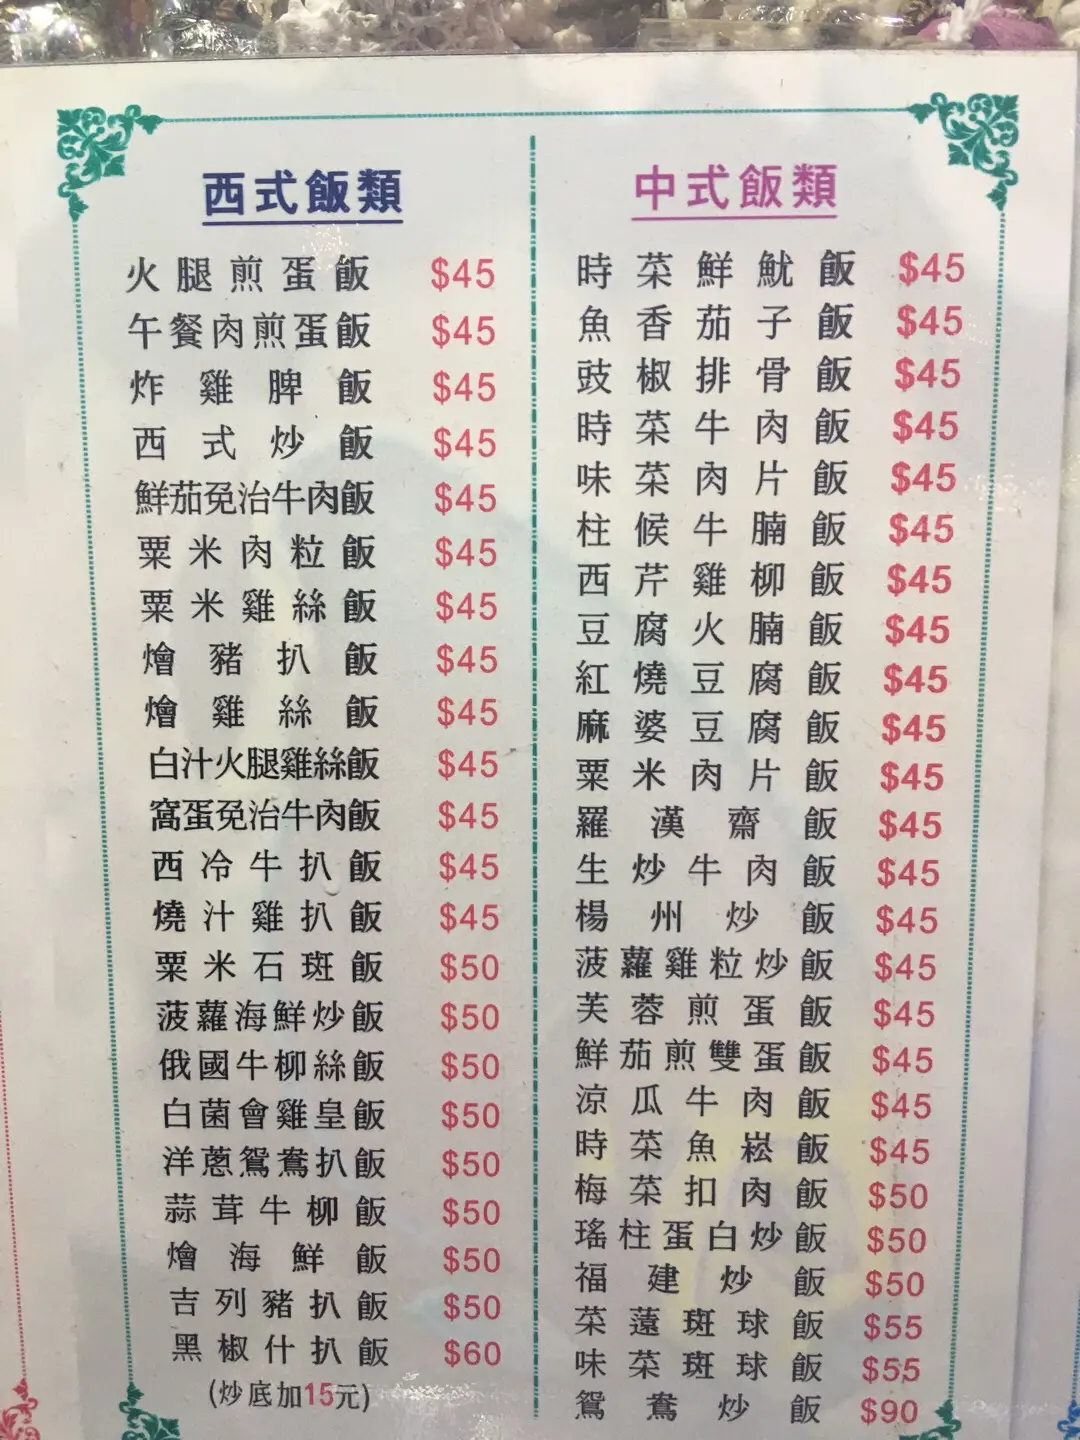 西式飯類
火腿煎蛋飯 $45
午餐肉煎蛋飯 $45
炸雞脾飯 $45
西式炒飯 $45
鮮茄免治牛肉飯 $45
粟米肉粒飯 $45
粟米雞絲飯 $45
燴豬扒飯 $45
燴雞絲飯 $45
白汁火腿雞絲飯 $45
窩蛋免治牛肉飯 $45
西冷牛扒飯 $45
燒汁雞扒飯 $45
粟米石斑飯 $50
菠蘿海鮮炒飯 $50
俄國牛柳絲飯 $50
白菌會雞皇飯 $50
洋蔥鴛鴦扒飯 $50
蒜茸牛柳飯 $50
燴海鮮飯 $50
吉列豬扒飯 $50
黑椒什扒飯 $60
(炒底加15元)
中式飯類
時菜鮮魷飯 $45
魚香茄子飯 $45
豉椒排骨飯 $45
時菜牛肉飯 $45
味菜肉片飯 $45
柱候牛腩飯 $45
西芹雞柳飯 $45
豆腐火腩飯 $45
紅燒豆腐飯 $45
麻婆豆腐飯 $45
粟米肉片飯 $45
羅漢齋飯 $45
生炒牛肉飯 $45
楊州炒飯 $45
菠蘿雞粒炒飯 $45
芙蓉煎蛋飯 $45
鮮茄煎雙蛋飯 $45
涼瓜牛肉飯 $45
時菜魚崧飯 $45
梅菜扣肉飯 $50
瑤柱蛋白炒飯 $50
福建炒飯 $50
菜薳斑球飯 $55
味菜斑球飯 $55
鴛鴦炒飯 $90